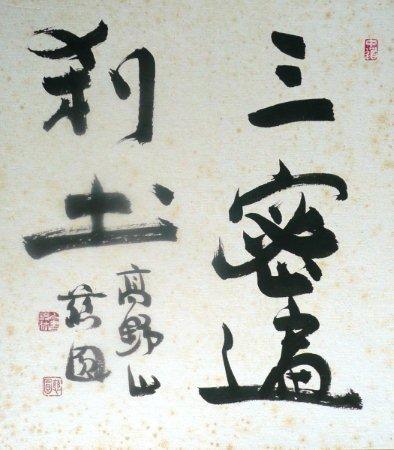 三密遍
刹土
高野山
慈圓